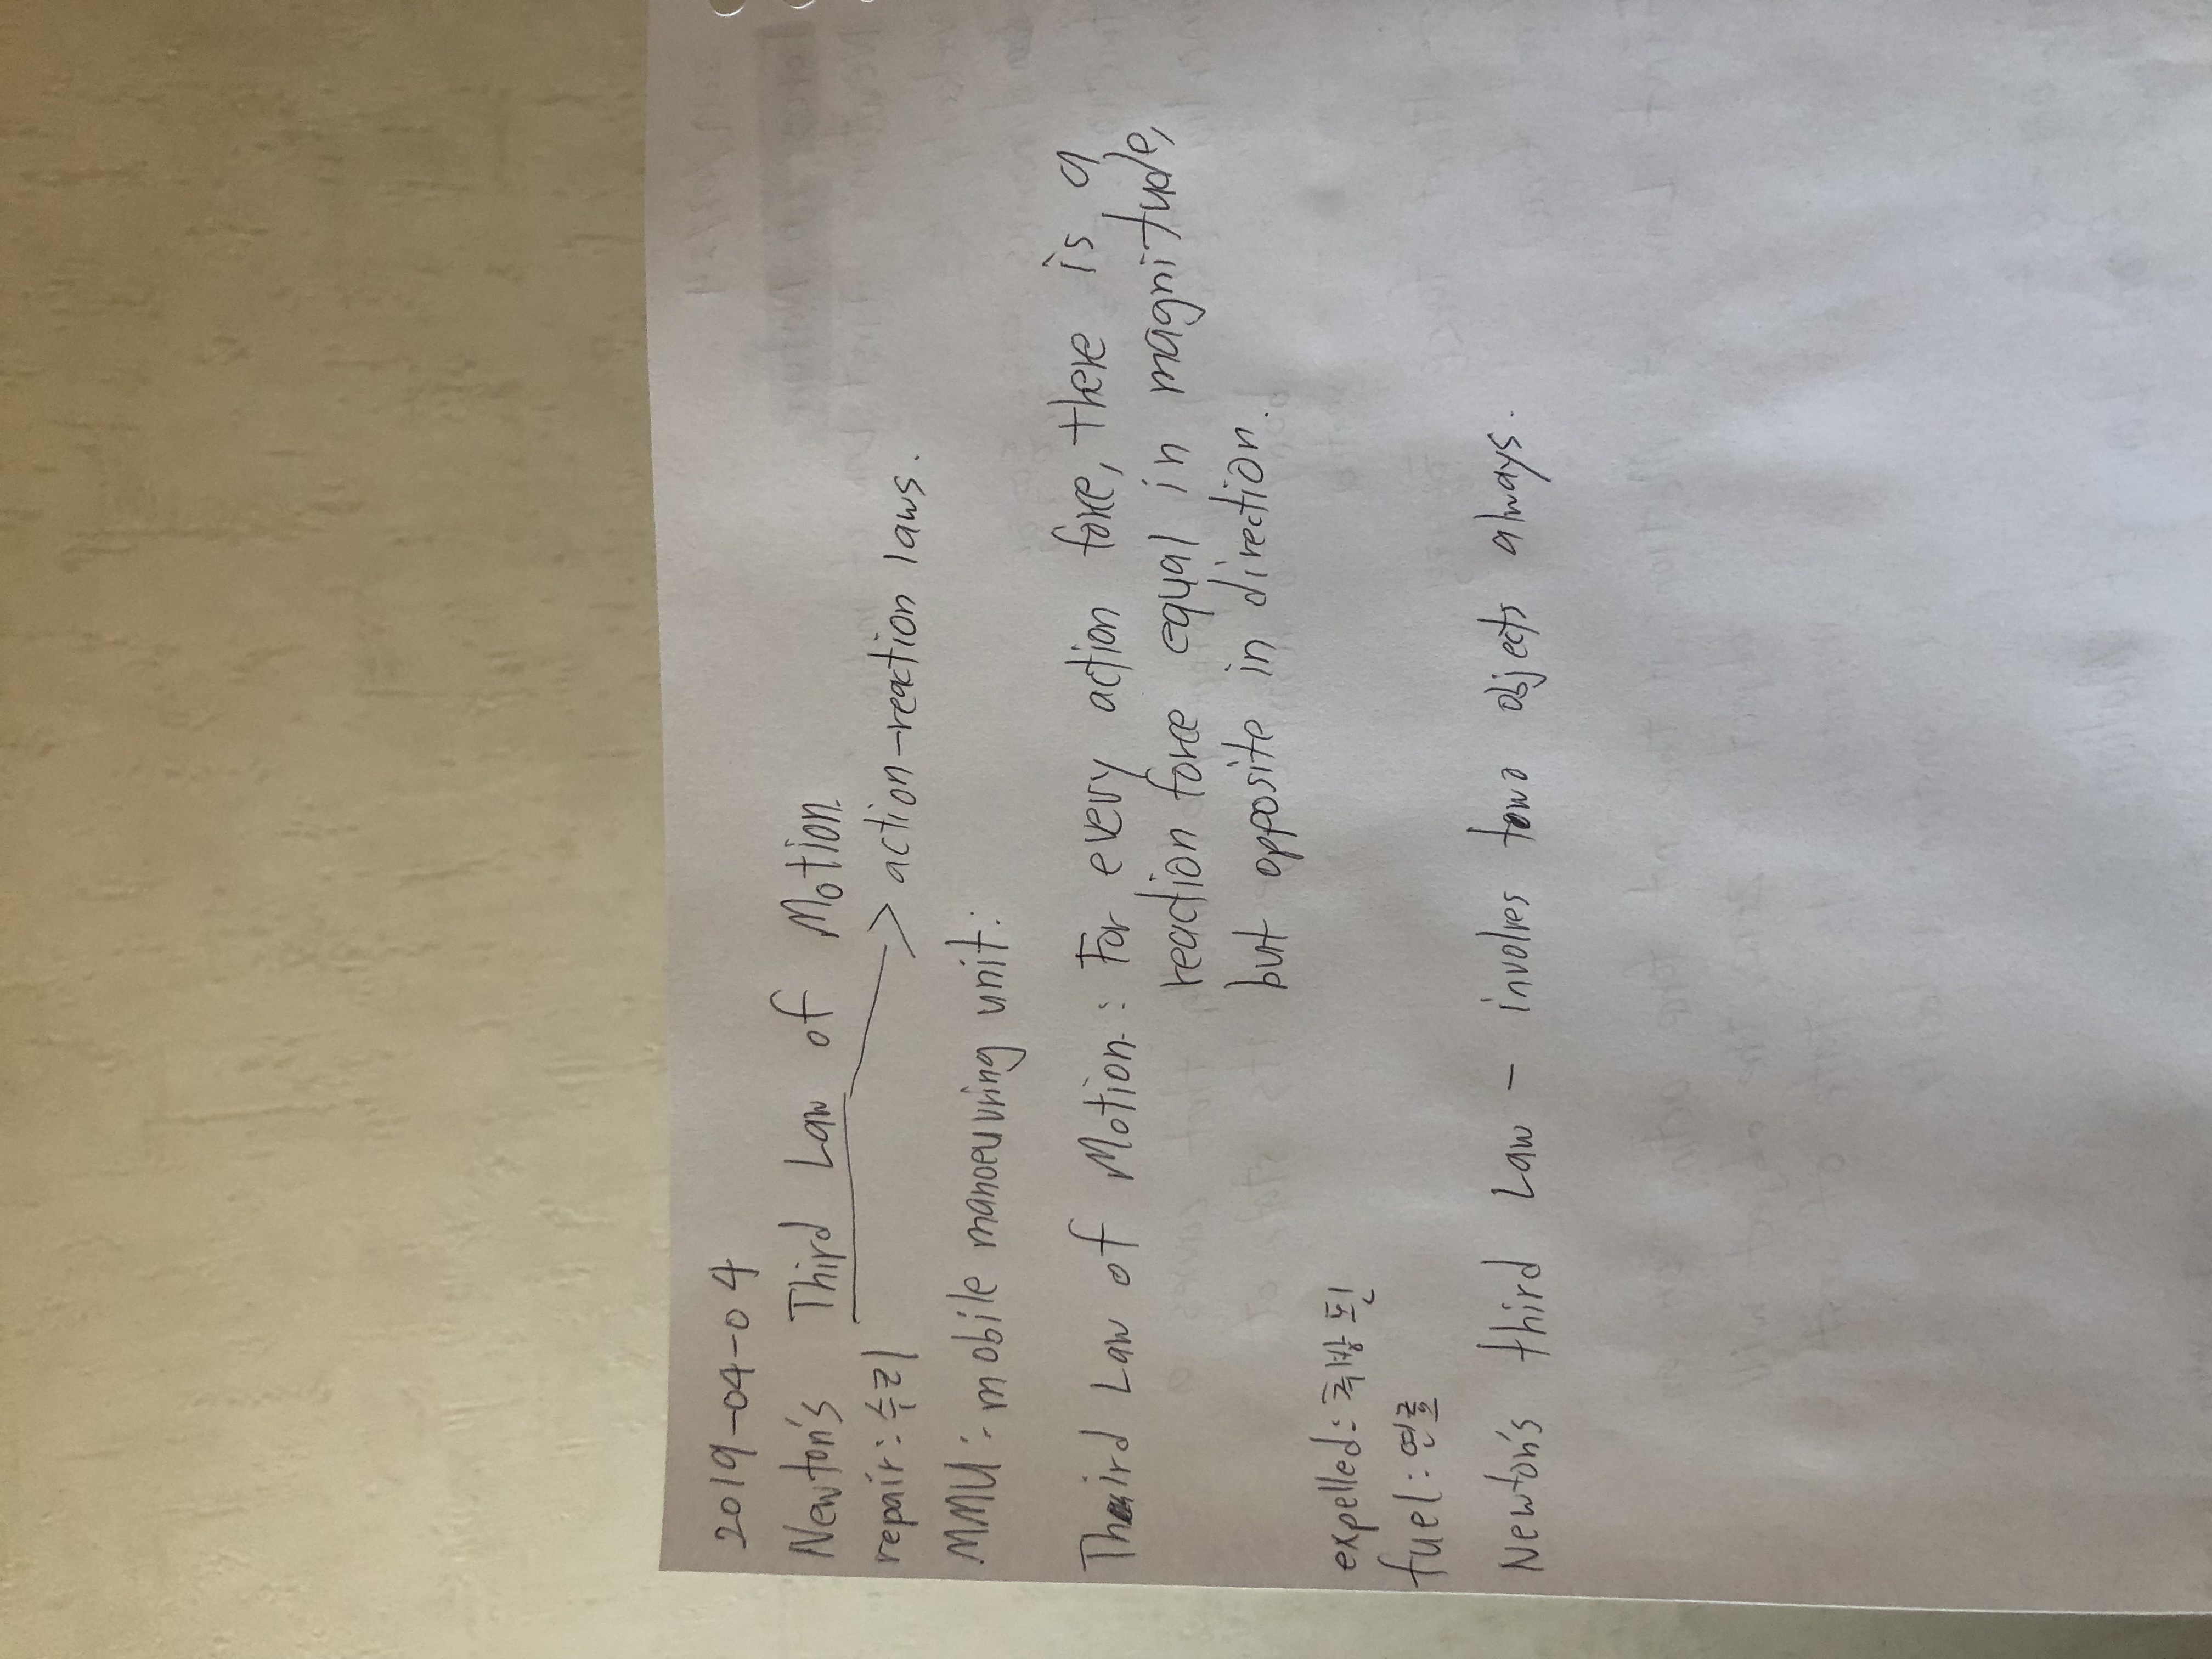 2019-04-04
Newton's Third Law of Motion.
repair: 수리 > action-reaction laws.
MMU: mobile manoeuvring unit:
Third Law of Motion: For every action force, there is a
reaction force equal in magnitude,
but opposite in direction.
expelled: 추방된
fuel: 연료
Newton's third Law - involves two objects always.